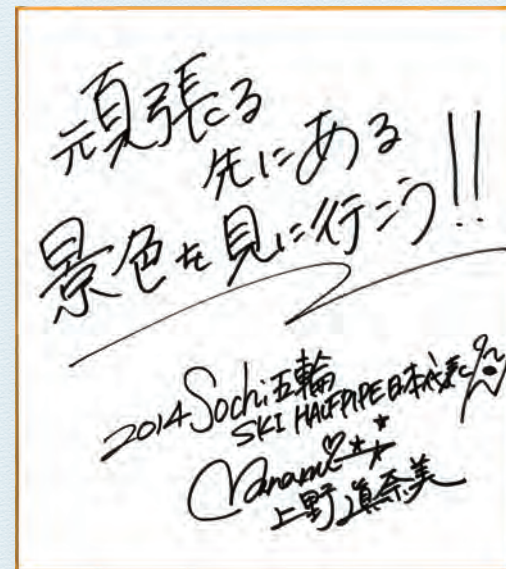 頑張る
先にある
景色を見に行こう!!
2014 Sochi五輪
SKI HALFPIPE 日本代表
Manami
上野真奈美